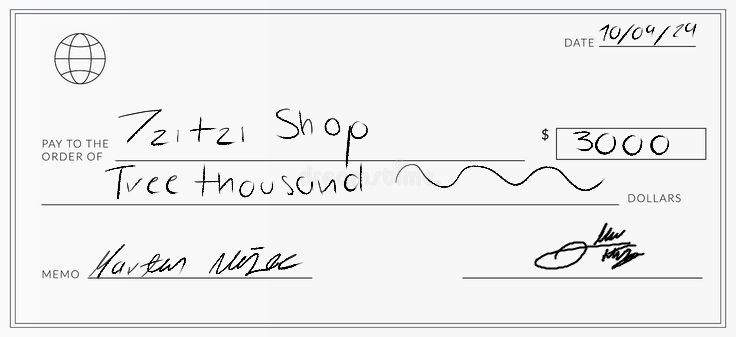 DATE 10/09/24
PAY TO THE
ORDER OF Tzitzi Shop
$ 3000
Tree thousand
DOLLARS
MEMO